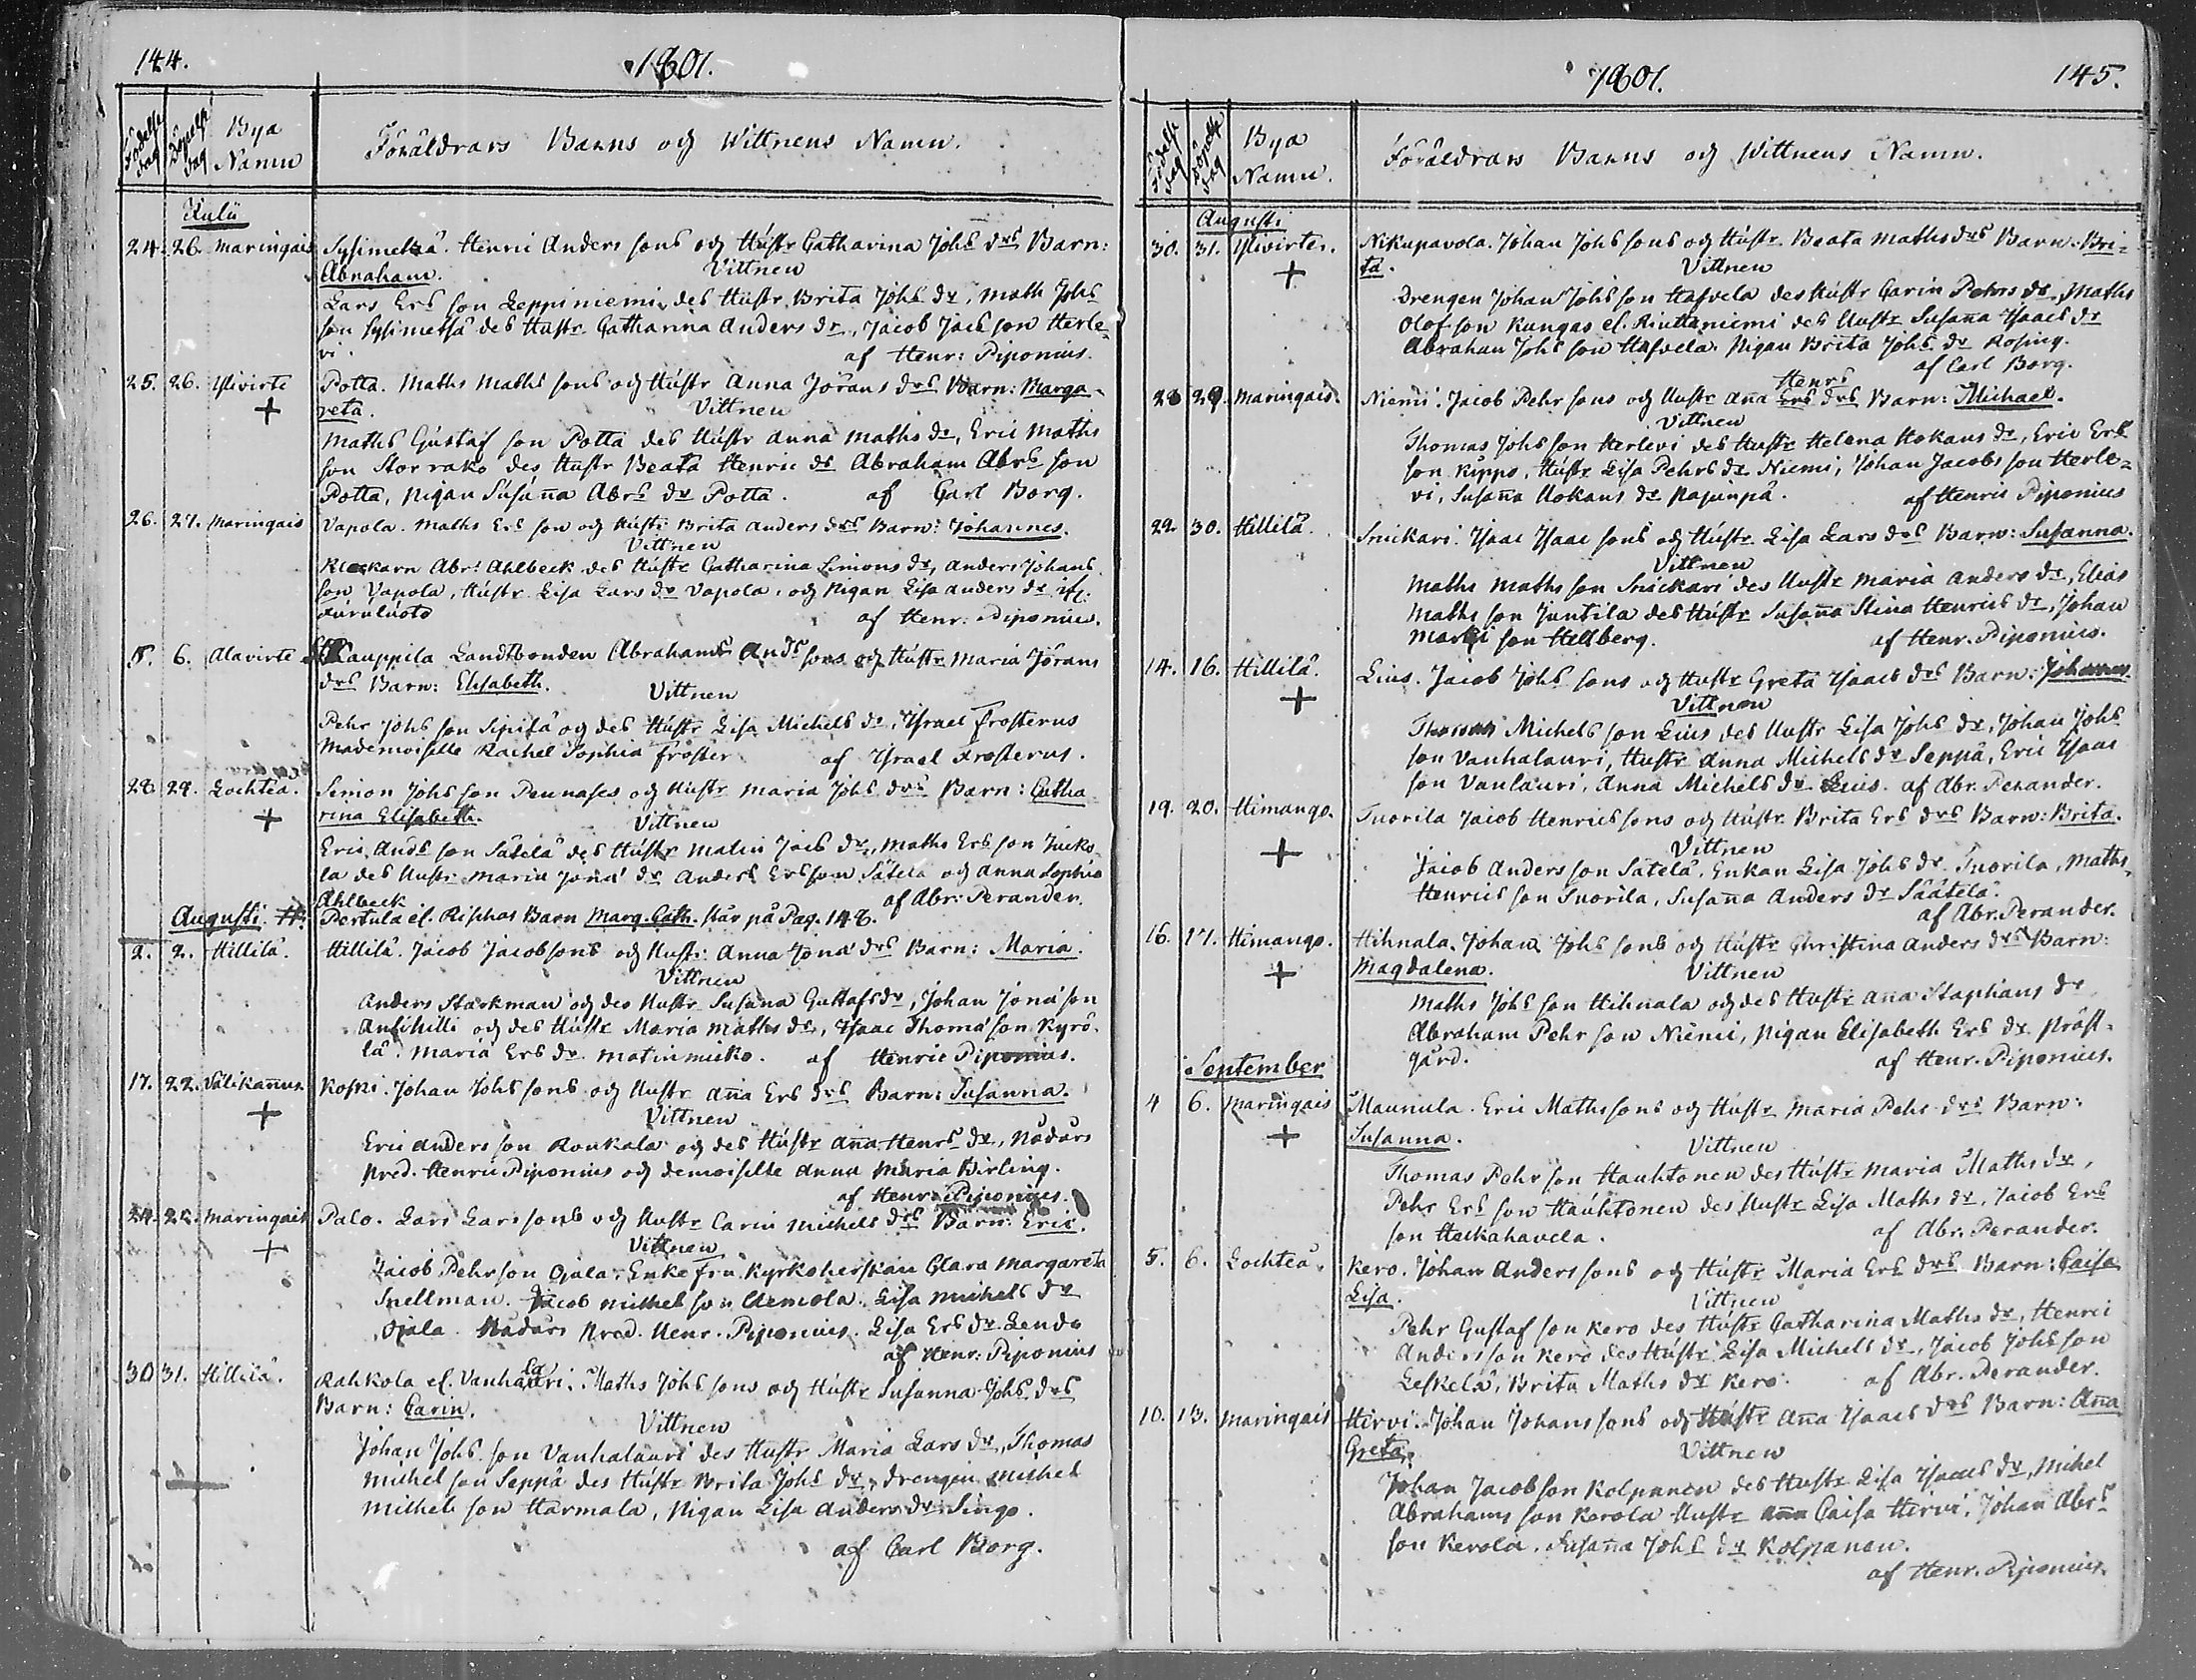 144.
1801.
Födelse dag
Döpelse dag
Bya Namn
Föräldrars Barns och Wittnens Namn.
Julii
24. 26. Maringais Sysimetsä. Henric Anders sons och Hustr Catharina Johs drs Barn:
Abraham. Vittnen
Lars Ers son Leppiniemi, des Hustr. Brita Johs dr, Math Johs
son Sysimetsä des Hustr. Catharina Anders dr, Jacob Jacs son Herle-
vi. af Henr: Piponius.
25. 26. Ylivirte Potta. Maths Maths sons och Hustr Anna Jörans drs Barn: Marga-
+ reta. Vittnen
Maths Gustaf son Potta des Hustr Anna Maths dr, Eric Maths
son Storrako des Hustr Beata Henric dr Abraham Abrs son
Potta, Pigan Susanna Abrs dr Potta. af Carl Borg.
26. 27. Maringais Vapola. Maths Ers son och Hustr Brita Anders drs Barn: Johannes.
Vittnen
Klockarn Abr: Ahlbeck des Hustr Catharina Simons dr, Anders Johans
son Vapola, Hustr Lisa Lars dr Vapola, och Pigan Lisa Anders dr
af Henr: Piponius.
5. 6. Alavirte Kauppila Landtbonden Abrahams Ands sons och Hustr Maria Jörans
drs Barn: Elisabeth. Vittnen
Pehr Johs son Sipilä och des Hustr Lisa Michels dr, Israel Frosterus
Mademoiselle Rachel Sophia Froster af Israel Frosterus.
28 29. Lochteå. Simon Johs son Pennases och Hustr Maria Johs drs Barn: Catha
+ rina Elisabeth. Vittnen
Eric Ands son Sätelä des Hustr Malin Jacs dr, Maths Ers son Juko-
la des Hustr Maria Jona dr Anders Ers son Sätelä och Anna Sophia
Ahlbeck af Abr: Perander.
Augusti #: Pertula el. Rischas Barn Marg. Cath. står på Pag. 148.
2. 2. Hillilä. Hillilä. Jacob Jacobsons och Hustr: Anna Jona drs Barn: Maria.
Vittnen
Anders Starkman och des Hustr Susanna Gustafs dr, Johan Jona son
Ansihilli och des Hustr Maria Maths dr, Isaac Thoma son Kyrö-
lä. Maria Ers dr Matinmicko. af Henric Piponius.
17. 22. Välikannus. Koski. Johan Johs sons och Hustr Anna Ers drs Barn: Susanna.
+ Vittnen
Eric Anders son Roukala och des Hustr Anna Henrs dr, Nådårs
Pred. Henric Piponius och Demoiselle Anna Maria Birling.
af Henr. Piponius.
24. 25. Maringais Palo. Lars Lars sons och Hustr Carin Michels drs Barn: Eric.
+ Vittnen
Jacob Pehr son Ojala. Enkefru Kyrkoherskan Clara Margareta
Snellman. Jacob Michel son Uemola. Lisa Michels dr
Ojala. Nådårs Pred. Henr. Piponius. Lisa Ers dr Lende
af Henr: Piponius
30 31. Hillilä. Rahkola el. Vanhalauri. Maths Johs sons och Hustr Susanna Johs. drs
Barn: Carin. Vittnen
Johan Johs. son Vanhalauri des Hustr Maria Lars dr, Thomas
Michel son Seppä des Hustr Brita Johs dr, Drengen Michel
Michels son Harmala, Pigan Lisa Anders dr Singo.
af Carl Borg.
1801. 145.
Födelse dag
Döpelse dag
Bya Namn.
Föräldrars Barns och Wittnens Namn.
Augusti
30. 31. Ylivirte. Nikupavola. Johan Johs sons och Hustr. Beata Maths drs Barn. Bri-
+ ta. Vittnen
Drengen Johan Johs son Hafvela des Hustr Carin Pehrs dr, Maths
Olof son Kungas el. Riuttaniemi des Hustr Susanna Isaacs dr
Abraham Johs son Hafvela. Pigan Brita Johs. dr Rosing.
af Carl Borg.
28 29. Maringais. Niemi. Jacob Pehr sons och Hustr Anna Henrs drs Barn: Michael.
Vittnen
Thomas Johs son Herlevi des Hustr Helena Hokans dr, Eric Ers
son Kippo, Hustr Lisa Pehrs dr Niemi, Johan Jacobs son Herle-
vi, Susanna Hokans dr Pajunpä. af Henric Piponius
29 30. Hillilä. Snickari. Isaac Isaac sons och Hustr Lisa Lars drs Barn: Susanna.
Vittnen
Maths Maths son Snickari des Hustr Maria Anders dr, Elias
Maths son Juntila des Hustr Susanna Stina Henrics dr, Johan
son Hellberg. af Henr. Piponius.
14. 16. Hillilä. Lius. Jacob Johs sons och Hustr Greta Isaacs drs Barn: Johannes.
+ Vittnen
Thomas Michels son Lius des Hustr Lisa Johs dr, Johan Johs
son Vanhalauri, Hustr Anna Michels dr Seppä, Eric Isaac
son Vanlauri, Anna Michels dr Lius. af Abr. Perander.
19. 20. Himango. Tuorila Jacob Henrics sons och Hustr Brita Ers drs Barn: Brita.
+ Vittnen
Jacob Anders son Sätelä. Enkan Lisa Johs dr Tuorila, Maths
Henrics son Tuorila, Susanna Anders dr Säätelä.
af Abr. Perander.
16. 17. Himango. Hihnala. Johan Johs sons och Hustr Christina Anders drs Barn:
+ Magdalena. Vittnen
Maths Johs son Hihnala och des Hustr Anna Staphans dr
Abraham Pehr son Niemi, Pigan Elisabeth Ers dr Präst-
gård. af Henr. Piponius.
September
4 6. Maringais Maunula. Eric Maths sons och Hustr Maria Pehr drs Barn:
+ Susanna. Vittnen
Thomas Pehr son Hauhtonen des Hustr Maria Maths dr,
Pehr Ers son Hauhtonen des Hustr Lisa Maths dr, Jacob Ers
son Heikahavela. af Abr. Perander.
5. 6. Lochteå. Kero. Johan Anders sons och Hustr Maria Ers drs Barn: Caisa
Lisa. Vittnen
Pehr Gustaf son Kero des Hustr Catharina Maths dr, Henric
Anders son Kero des Hustr Lisa Michels dr, Jacob Johs son
Leskelä, Brita Maths dr Kero. af Abr. Perander.
10. 13. Maringais Hirvi. Johan Johans sons och Hustr Anna Isaacs drs Barn: Anna
Greta. Vittnen
Johan Jacob son Kolpanen des Hustr Lisa Isaacs dr, Michel
Abrahams son Kerola Hustr Caisa Hirvi, Johan Abrs
son Kerola. Susanna Johs dr Kolpanen.
af Henr. Piponius.